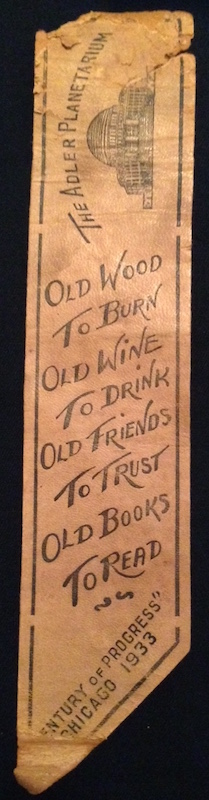 THE ADLER PLANETARIUM
OLD WOOD
TO BURN
OLD WINE
TO DRINK
OLD FRIENDS
TO TRUST
OLD BOOKS
TO READ
ENTURY OF PROGRESS"
CHICAGO 1933